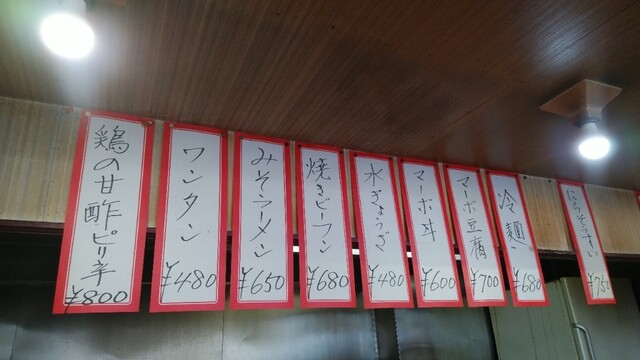 鶏の甘酢ピリ辛
¥800
ワンタン
¥480
みそラーメン
¥650
焼きビーフン
¥680
水ぎょうざ
¥480
マーボ丼
¥600
マーボ豆腐
¥700
冷麺
¥680
にらそうすい
¥750